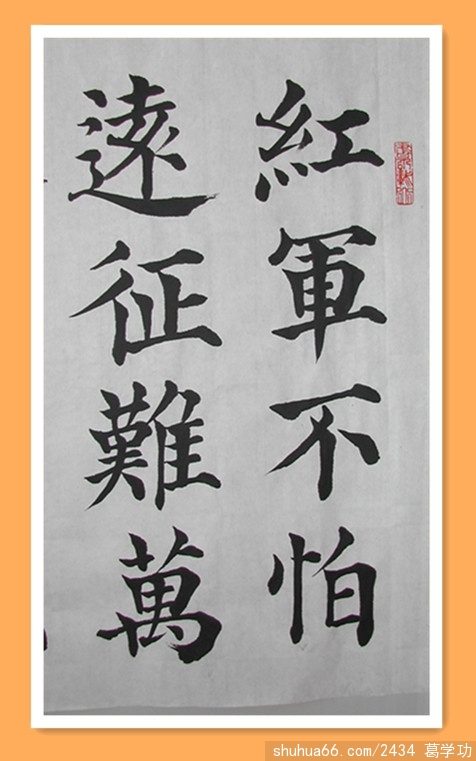 紅軍不怕
遠征難萬
shuhua66.com/2434 葛学功